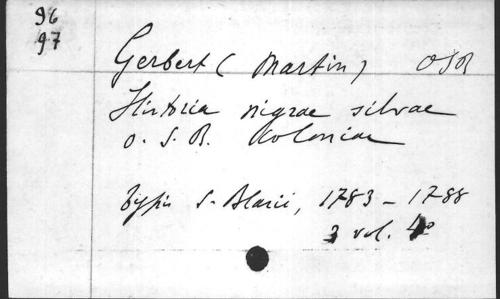 96
97
Gerbert (Martin) OSB
Historia nigrae silvae
O. S. B. Coloniae
typis S. Blasii, 1783 - 1788
3 vol. 4º